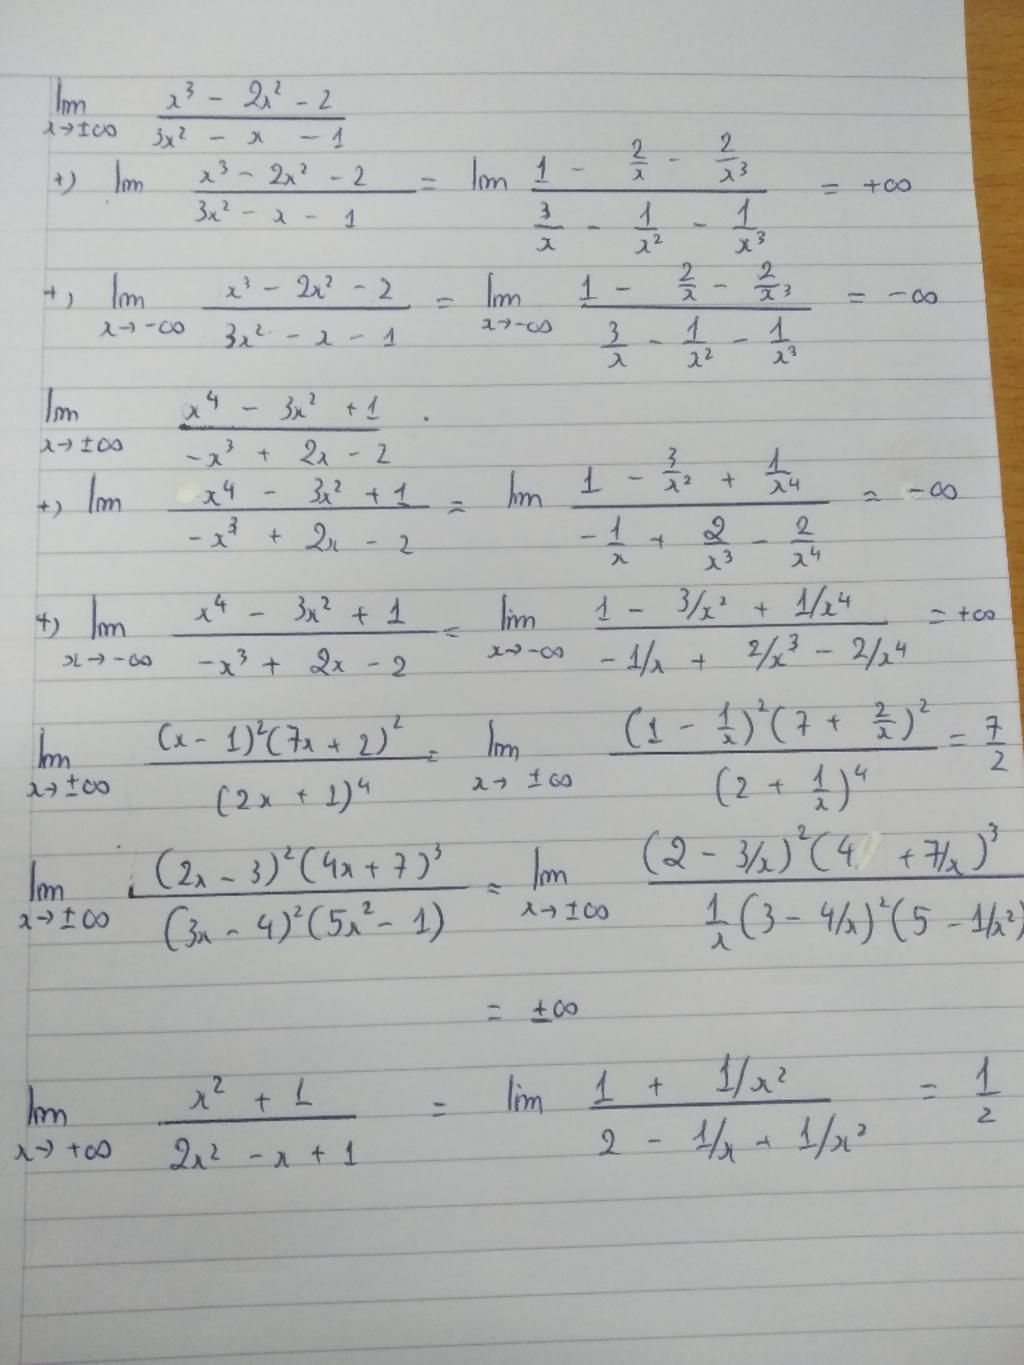 lim x→±∞ (x³ - 2x² - 2)/(3x² - x - 1)
+) lim (x³ - 2x² - 2)/(3x² - x - 1) = lim (1 - 2/x - 2/x³)/(3/x - 1/x² - 1/x³) = +∞
+) lim x→-∞ (x³ - 2x² - 2)/(3x² - x - 1) = lim x→-∞ (1 - 2/x - 2/x³)/(3/x - 1/x² - 1/x³) = -∞
lim x→±∞ (x⁴ - 3x² + 1)/(-x³ + 2x - 2) .
+) lim (x⁴ - 3x² + 1)/(-x³ + 2x - 2) = lim (1 - 3/x² + 1/x⁴)/(-1/x + 2/x³ - 2/x⁴) = -∞
+) lim x→-∞ (x⁴ - 3x² + 1)/(-x³ + 2x - 2) = lim x→-∞ (1 - 3/x² + 1/x⁴)/(-1/x + 2/x³ - 2/x⁴) = +∞
lim x→±∞ (x - 1)²(7x + 2)²/(2x + 1)⁴ = lim x→±∞ (1 - 1/x)²(7 + 2/x)²/(2 + 1/x)⁴ = 7/2
lim x→±∞ (2x - 3)²(4x + 7)³/(3x - 4)²(5x² - 1) = lim x→±∞ (2 - 3/x)²(4 + 7/x)³/(1/x (3 - 4/x)²(5 - 1/x²)
= ±∞
lim x→+∞ (x² + 1)/(2x² - x + 1) = lim (1 + 1/x²)/(2 - 1/x + 1/x²) = 1/2